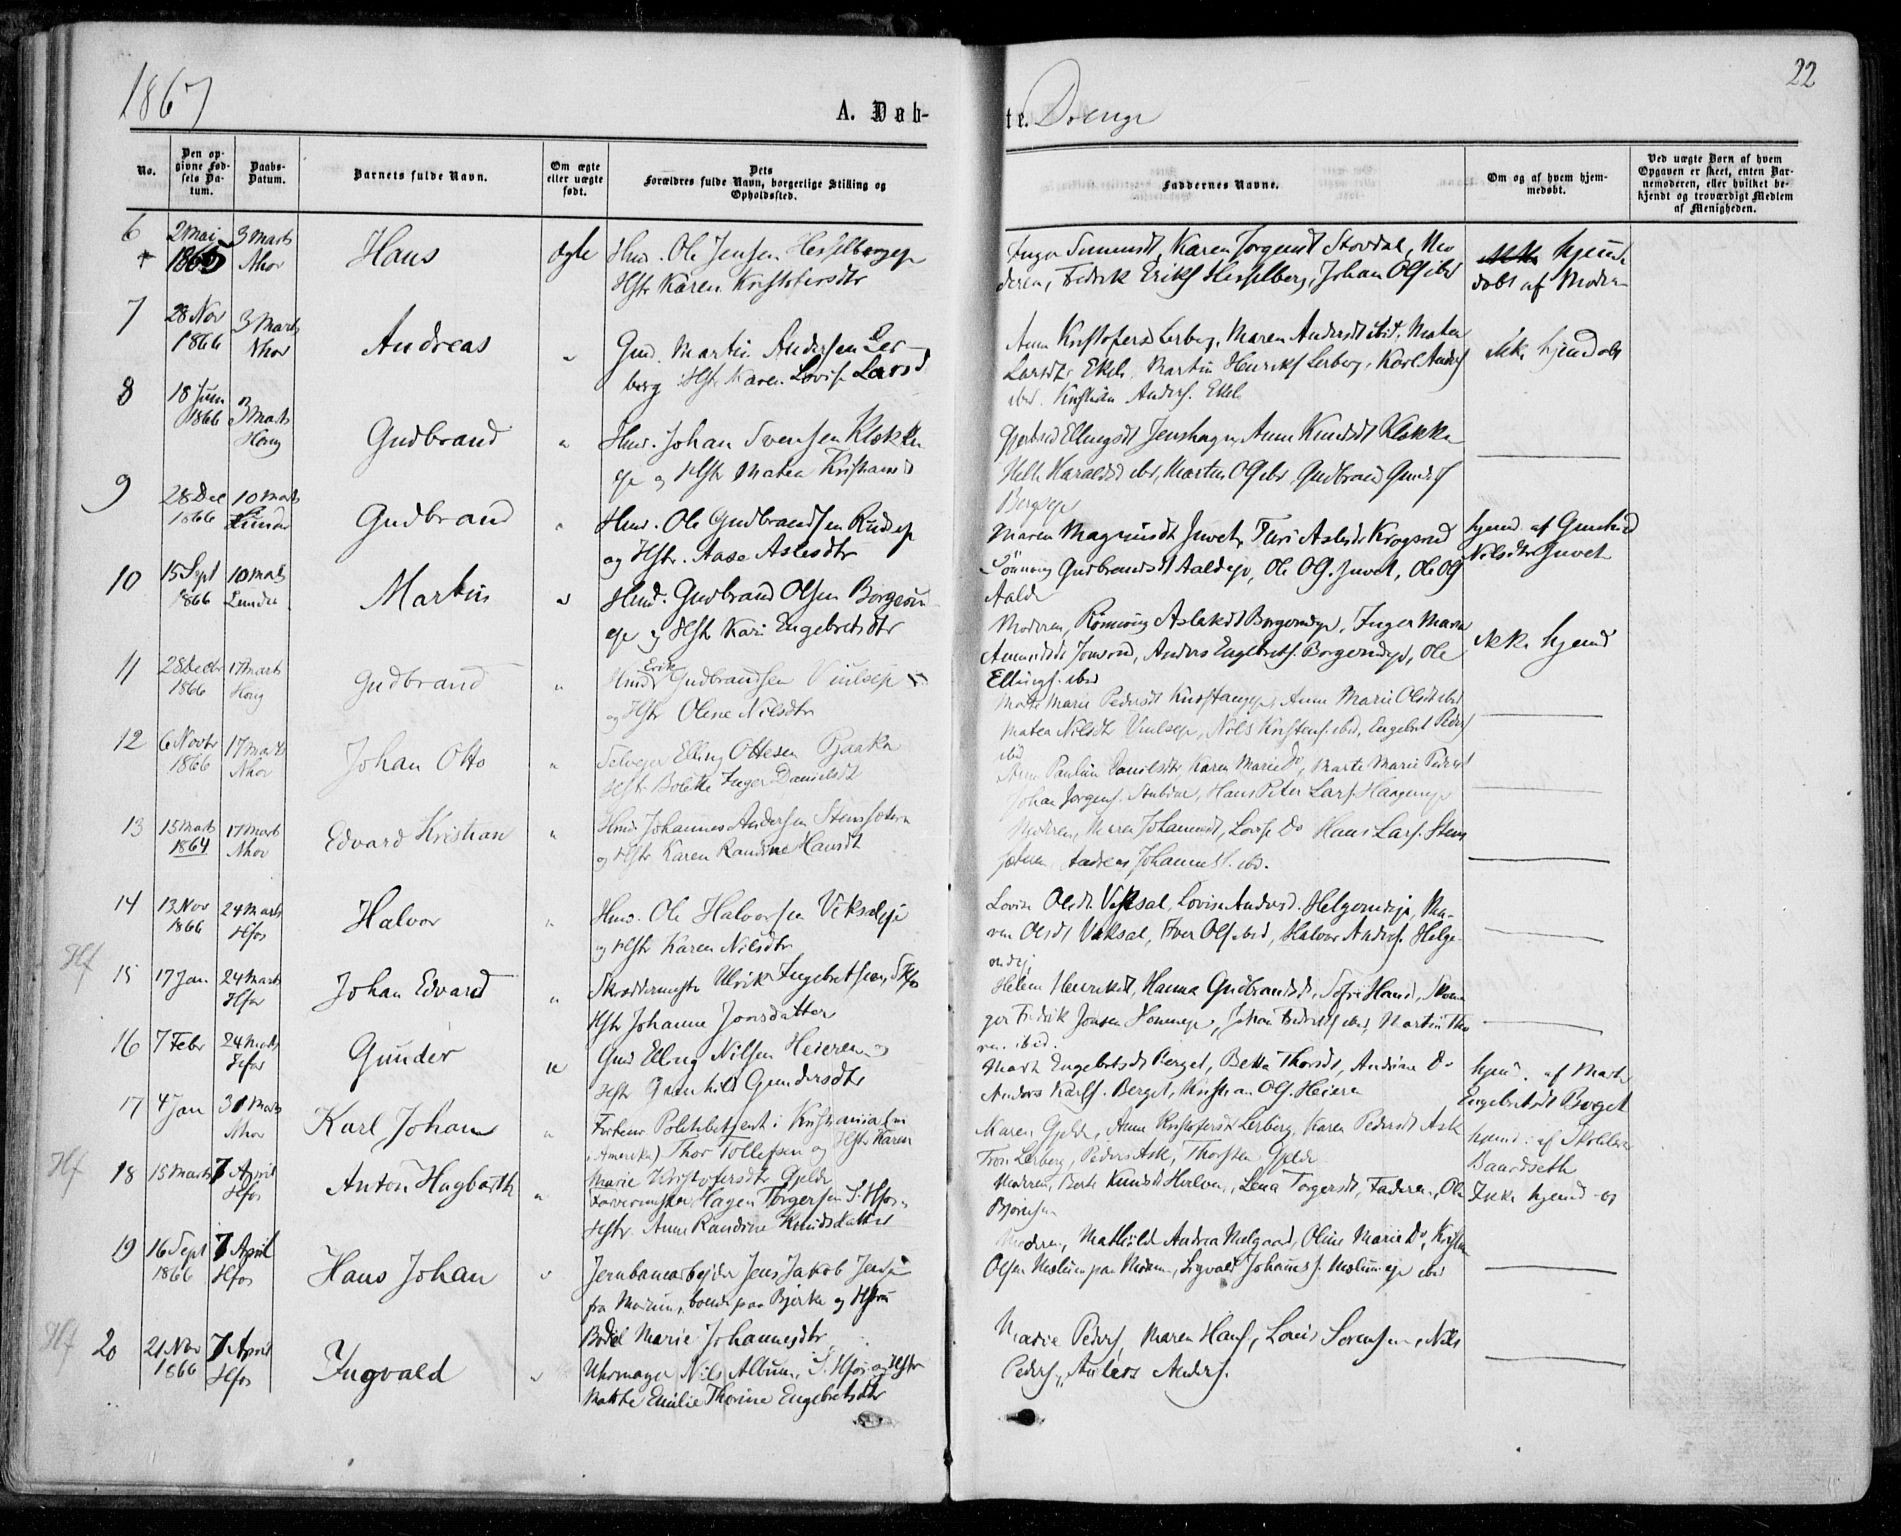 1867
22
A. Døb-
te. Drenge
No.
Den op-
givne Fød-
sels Da-
tum.
Daabs-
Datum.
Barnets fulde Navn.
Om ægte
eller uægte
født.
Dets
Forældres fulde Navn, borgerlige Stilling og
Opholdssted.
Faddernes Navne.
Om og af hvem hjem-
medøbt.
Ved uægte Børn af hvem
Opgaven er skeet, enten Bar-
nemoderen, eller hvilket be-
kjendt og troværdigt Medlem
af Menigheden.
6 2 Mai 1865 3 Marts Nhov Hans ægte Hmd. Ole Jensen Hesselbergeje
Hstr Karen Kristofersdtr
Karen Jorgensdt Stovdal, Mo
deren, Fredrik Eriks. Hesselberg, Johan Ols. ibd
hjemme
døbt af Moderen
7 28 Nov 1866 3 Marts Nhov Andreas " Gmd. Martin Andersen Ler-
berg Hstr Karen Lovise Larsd
Anne Kristofersd Lerberg, Maren Andersdt ibid. Matea
Larsdt Ekeli, Martin Henriks. Lerberg, Karl Anders.
ibd. Kristian Anders. Ekel
ikke hjemdøbt
8 18 Juni 1866 3 Marts Houg Gudbrand " Hmd. Johan Svensen Klækken
eje og Hstr Matea Kristiansd
Ellingsdt Jenshaugen, Anne Knudsdt Klækken
Helle Haraldsd ibd, Morten Ols. ibd, Gudbrand Gunds.
Bergseje
9 28 Dec 1866 10 Marts Lunder Gudbrand " Hmd. Ole Gudbrandsen Rudseje
og Hstr. Aase Aslesdtr
Maren Magnusdt Juvet, Turi Aslesd Krogsrud
Rønnoug Gudbrandsdt Aaldeje, Ole Ols. Juvet, Ole Ols
Aald
hjemd. af Gunhild
Nilsdtr Juvet
10 15 Sept 1866 10 Marts Lunder Martin " Hmd. Gudbrand Olsen Borgerud
eje og Hstr Kari Engebretsdtr
Moderen, Rønnoug Aslaksdt Borgerudeje, Inger Maria
Amundsdt Jonsrud, Anders Engebrets. Borgerudeje, Ole
Ellings. ibd
ikke hjemd
11 28 Decbr 1866 17 Marts Houg Gudbrand " Hmd Erik Gudbrandsen Viulseje
og Hstr Olene Nilsdtr
Marte Marie Pedersdt Knestangeje, Anne Marie Olsdt ibd
Matea Nilsdtr Viulseje, Nils Kristens. ibd, Engebret Peders.
ibd
12 6 Novbr 1866 17 Marts Nhov Johan Otto " Selvejer Elling Ottesen Bjaaka
Hstr Bolette Inger Danielsdt
Anne Pauline Danielsdtr Karen Marie Do, Marte Marie Pedersd
Johan Jorgens. , Hans Peter Lars. Haugeneje
13 15 Marts 1864 17 Marts Nhov Edvard Kristian " Hmd Johannes Andersen
og Hstr Karen Randine Hansdt
Moderen, Maren Johannesdt, Lovise Do Hans Lars.
Andreas Johannes. ibd.
14 13 Nov 1866 24 Marts Hfos Halvor " Hmd. Ole Halvorsen Viksaleje
og Hstr Karen Nilsdtr
Lovise Olsdt Viksal, Lovise Andersd. Helgerudeje, Ma-
ren Olsdt Viksal, Iver Ols. ibd, Halvor Anders. Helge
rudej
Hf
15 17 Jan 24 Marts Hfos Johan Edvard " Skræddermester Ulrik Engebretsen, S. Hfos
Hstr Johanne Jonsdatter
Helene Henriksdt, Hanna Gudbrandsd, Sofie Hansd,
Fredrik Jonsen Hønneje, Johan Fredriks. ibd, Martin Tho
ibid.
16 7 Febr 24 Marts Hfos Gunder " Gmd Elling Nilsen Heieren og
Hstr Gunhild Gundersdtr
Marte Engebretsdt Berget, Bertha Thorsdt, Andrine Do
Anders Karls. Berget, Kristian Ols. Heieren
hjemd. af Marte
Engebretsdt Berget
17 4 Jan 31 Marts Nhov Karl Johan " Forhenv. Politibetjent i Kristiania (nu
i Amerika) Thor Tollefsen og Hstr Karen
Marie Kristofersdtr Gjelde
Maren Gjelde, Anne Kristofersdt Lerberg, Karen Pedersdt Ask
Tron Lerberg, Peders. Ask, Thorsten Gjelde
hjemd. af
Baardseth
Hf
18 15 Marts 7 April Hfos Anton Hagbarth " Farvermester Hagen Torgersen S. Hfos,
Hstr. Anne Randine Knudsdatter
Moderen, Berte Knudsdt Hvalen, Lena Torgersdt, Faderen, Ole
Bjørnsen
Ikke hjemd
19 16 Sept 1866 7 April Hfos Hans Johan " Jernbanearbejder Jens Jakob Jensen
fra Modum, boende paa Bjerke og Hstru
Bodil Marie Johannesdtr
Moderen, Mathilde Andrea Melgaard, Oline Marie Do, Kristen
Olsen Moelum paa Modum, Sigvald Johans. Moelumeje ibd
Hf
20 21 Nov 1866 7 April Hfos Ingvald " Uhrmager Nils Album, S. Hfos og Hstr
Marthe Emilie Thorine Engebretsdtr
Marie Peders, Maren Hans., Lovis Sorensen, Nils
Peders., Anders Anders.